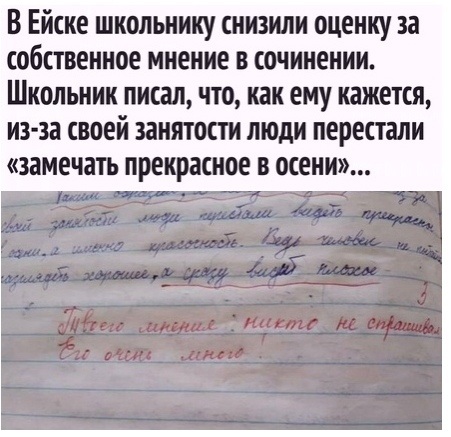 В Ейске школьнику снизили оценку за
собственное мнение в сочинении.
Школьник писал, что, как ему кажется,
из-за своей занятости люди перестали
«замечать прекрасное в осени»...
Таким образом, из-за
своей занятости люди перестали видеть прекрасное
в осени, а именно красочность. Ведь человек не
разглядеть хорошее, а сразу видит плохое
3
Твоего мнения никто не спрашивал
Его очень много